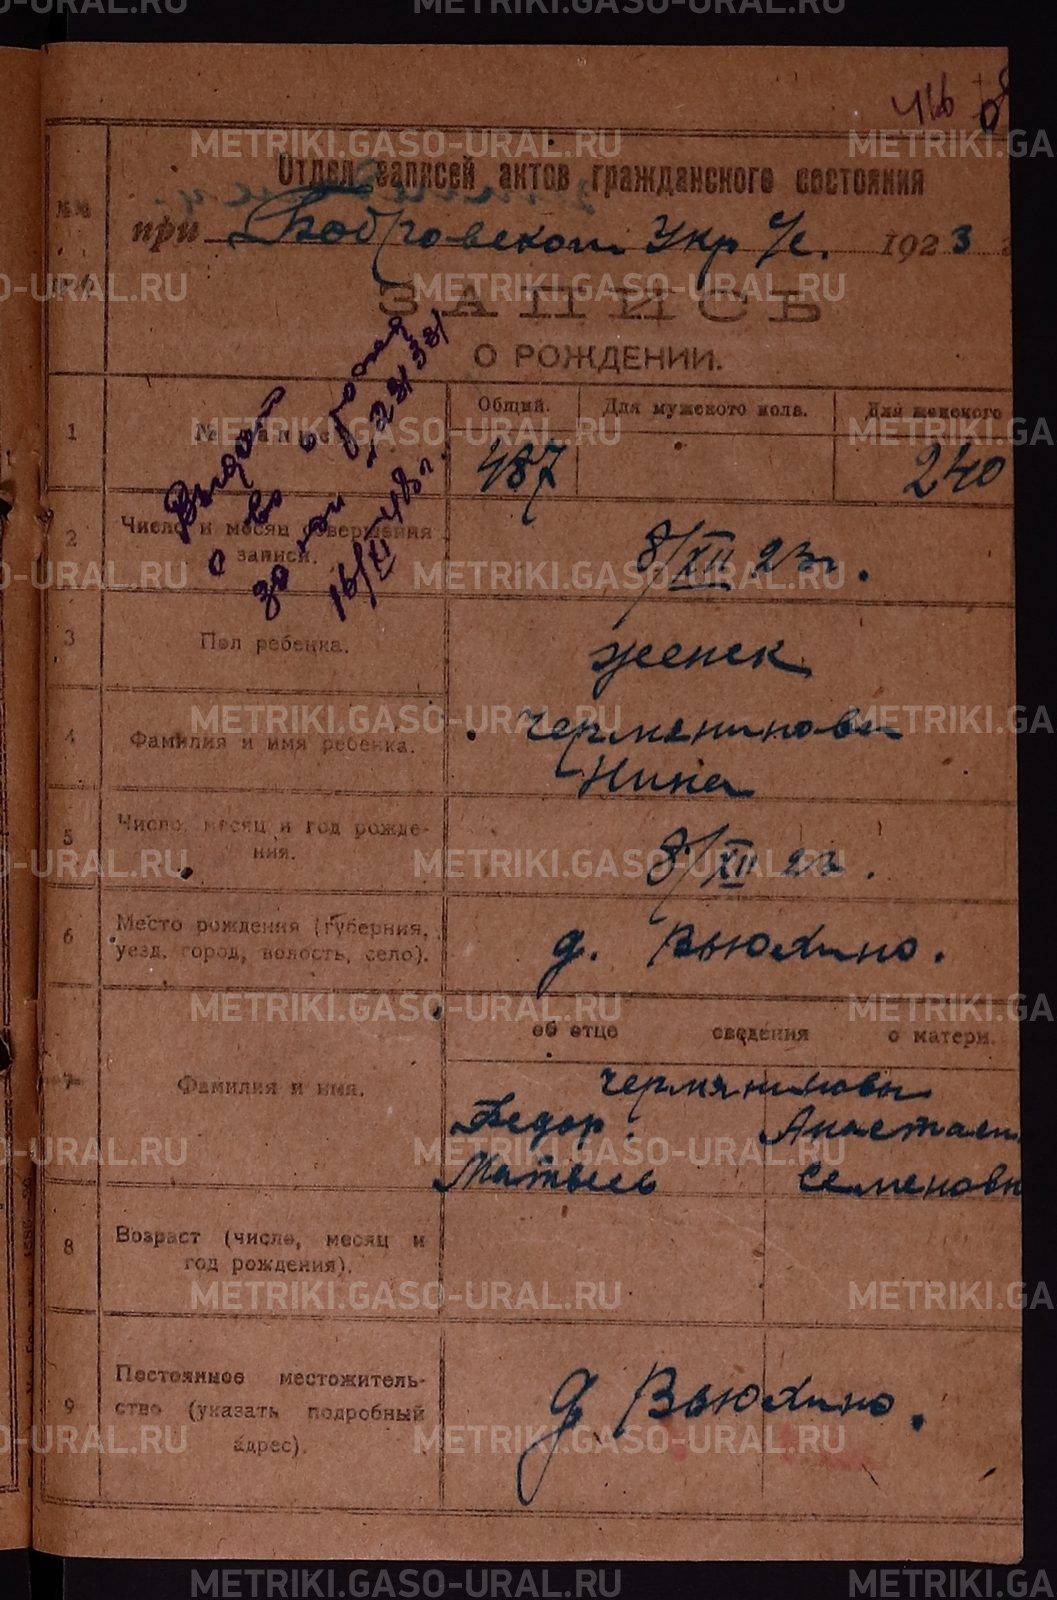 METRIKI.GASO-URAL.RU
416
Отдел записей актов гражданского состояния
№№
при Бобровском Укр 1923
ЗАПИСЬ
О РОЖДЕНИИ.
Выдано
св о рожд
за
16/II 48 г.
1
Общий.
Для мужского пола.
Для женского
487
240
2
Число и месяц совершения
записи.
8/XII 23 г.
3
Пол ребенка.
женск
4
Фамилия и имя ребенка.
Чермянинова
Нина
5
Число, месяц и год рожде-
ния.
8/XII 23.
6
Место рождения (губерния,
уезд, город, волость, село).
д. Вьюхино.
об отце сведения о матери.
7
Фамилия и имя.
Чермяниновы
Федор Анастасия
Матвеев Семеновн
8
Возраст (число, месяц и
год рождения).
9
Постоянное местожитель-
ство (указать подробный
адрес).
д Вьюхино.